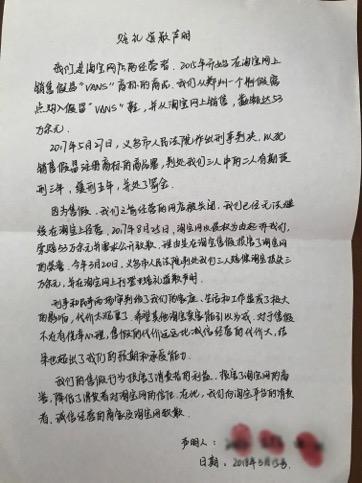 赔礼道歉声明
我们是淘宝网店的经营者。2015年开始在淘宝网上
销售假冒"VANS"商标的商品。我们从郑州一个制假窝
点购入假冒"VANS"鞋,并从淘宝网上销售,金额达53
万余元。
2017年5月27日,义乌市人民法院作出刑事判决,以犯
销售假冒注册商标的商品罪,判处我们三人中的二人有期徒
刑三年,缓刑五年,并处了罚金。
因为售假,我们之前经营的网店被关闭,我们已经无法继
续在淘宝上经营。2017年8月25日,淘宝网以侵权为由起诉我们,
索赔万元并要求公开致歉。理由是在淘宝售假损害了淘宝网
的荣誉。今年3月20日,义乌市人民法院判决我们三人赔偿淘宝损失三
万余元,并在淘宝网上刊登赔礼道歉声明。
刑事和民事两场审判给了我们的家庭、生活和工作造成了极大
的影响,代价太沉重了。希望其他淘宝卖家能引以为戒。对于售假
不应有侥幸心理,售假的代价远远比诚信经营的代价大,结
果也超出了我们的预期和承受能力。
我们的售假行为损害了消费者的利益,损害了淘宝网的商
誉,降低了消费者对淘宝网的信任。在此,我们向淘宝平台的消费
者、诚信经营的商家及淘宝网致歉。
声明人:
日期:2018年5月15日